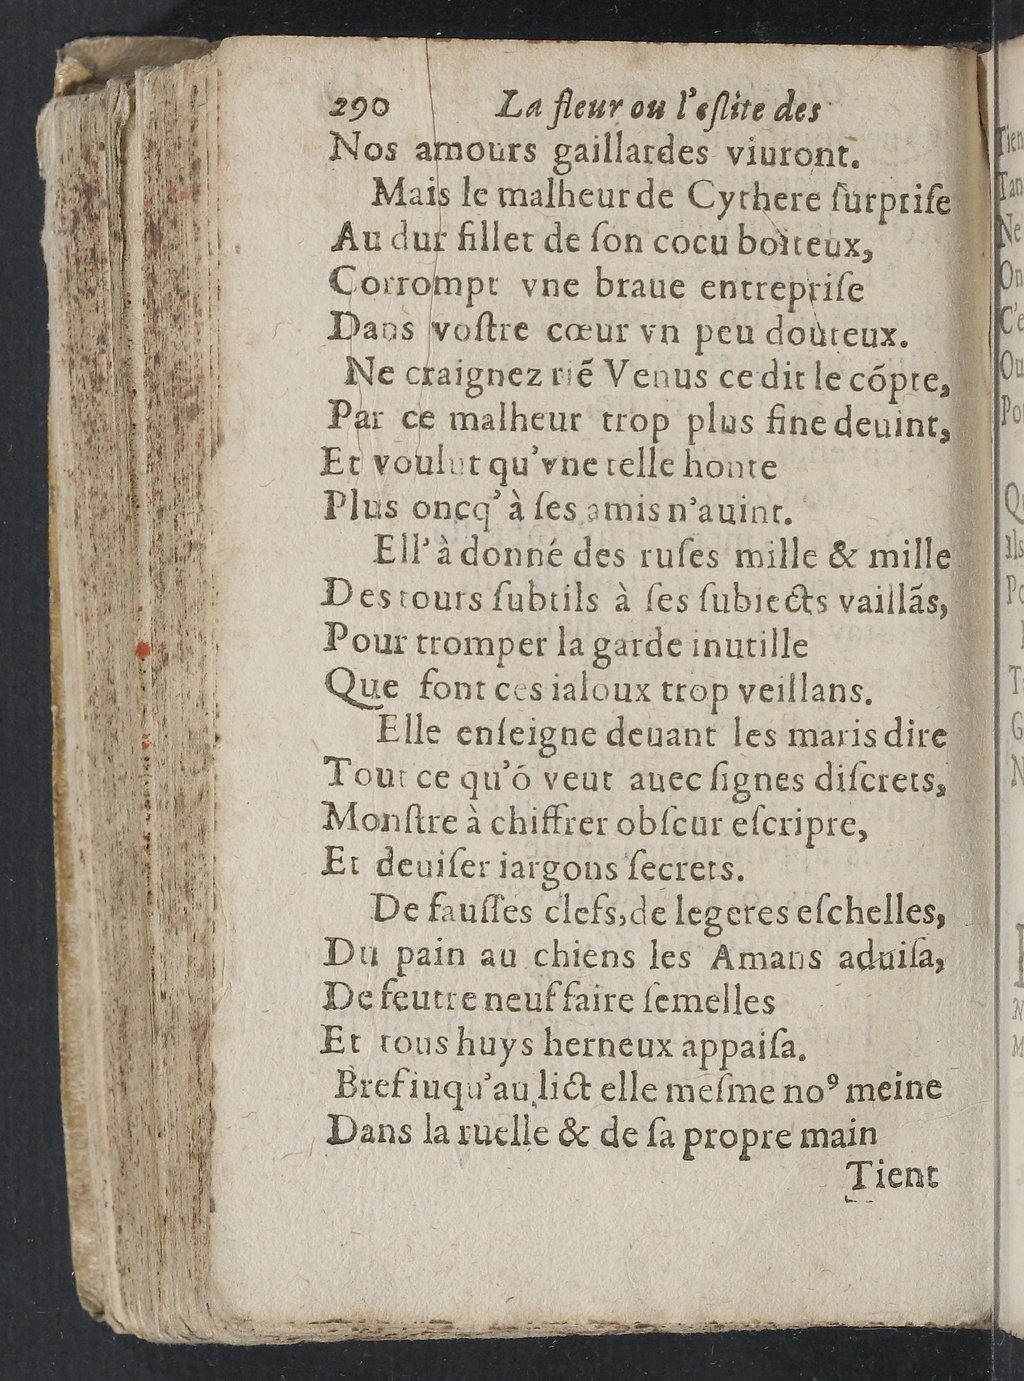 290 La fleur ou l'eſlite des
Nos amours gaillardes viuront.
Mais le malheur de Cythere ſurpriſe
Au dur fillet de ſon cocu boiteux,
Corrompt vne braue entrepriſe
Dans voſtre cœur vn peu douteux.
Ne craignez riẽ Venus ce dit le cópte,
Par ce malheur trop plus fine deuint,
Et voulut qu'vne telle honte
Plus oncq' à ſes amis n'auint.
Ell' à donné des ruſes mille & mille
Des tours ſubtils à ſes ſubiects vaillãs,
Pour tromper la garde inutille
Que font ces ialoux trop veillans.
Elle enſeigne deuant les maris dire
Tout ce qu'ó veut auec ſignes diſcrets,
Monſtre à chiffrer obſcur eſcripre,
Et deuiſer iargons ſecrets.
De fauſſes clefs, de legeres eſchelles,
Du pain au chiens les Amans aduiſa,
De feutre neuf faire ſemelles
Et tous huys herneux appaiſa.
Bref iuqu'au lict elle meſme noꝰ meine
Dans la ruelle & de ſa propre main
Tient